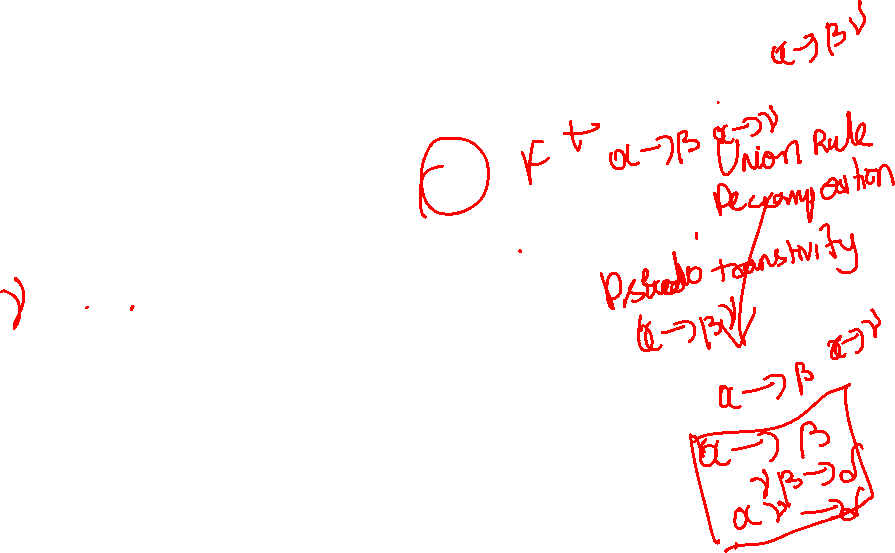 α→βγ
F
F+ α→β α→γ
Union Rule
Decomposition
Pstedo transtivity
γ
α→βγ
α→β α→γ
α→β
γβ→δ
αγ→δ